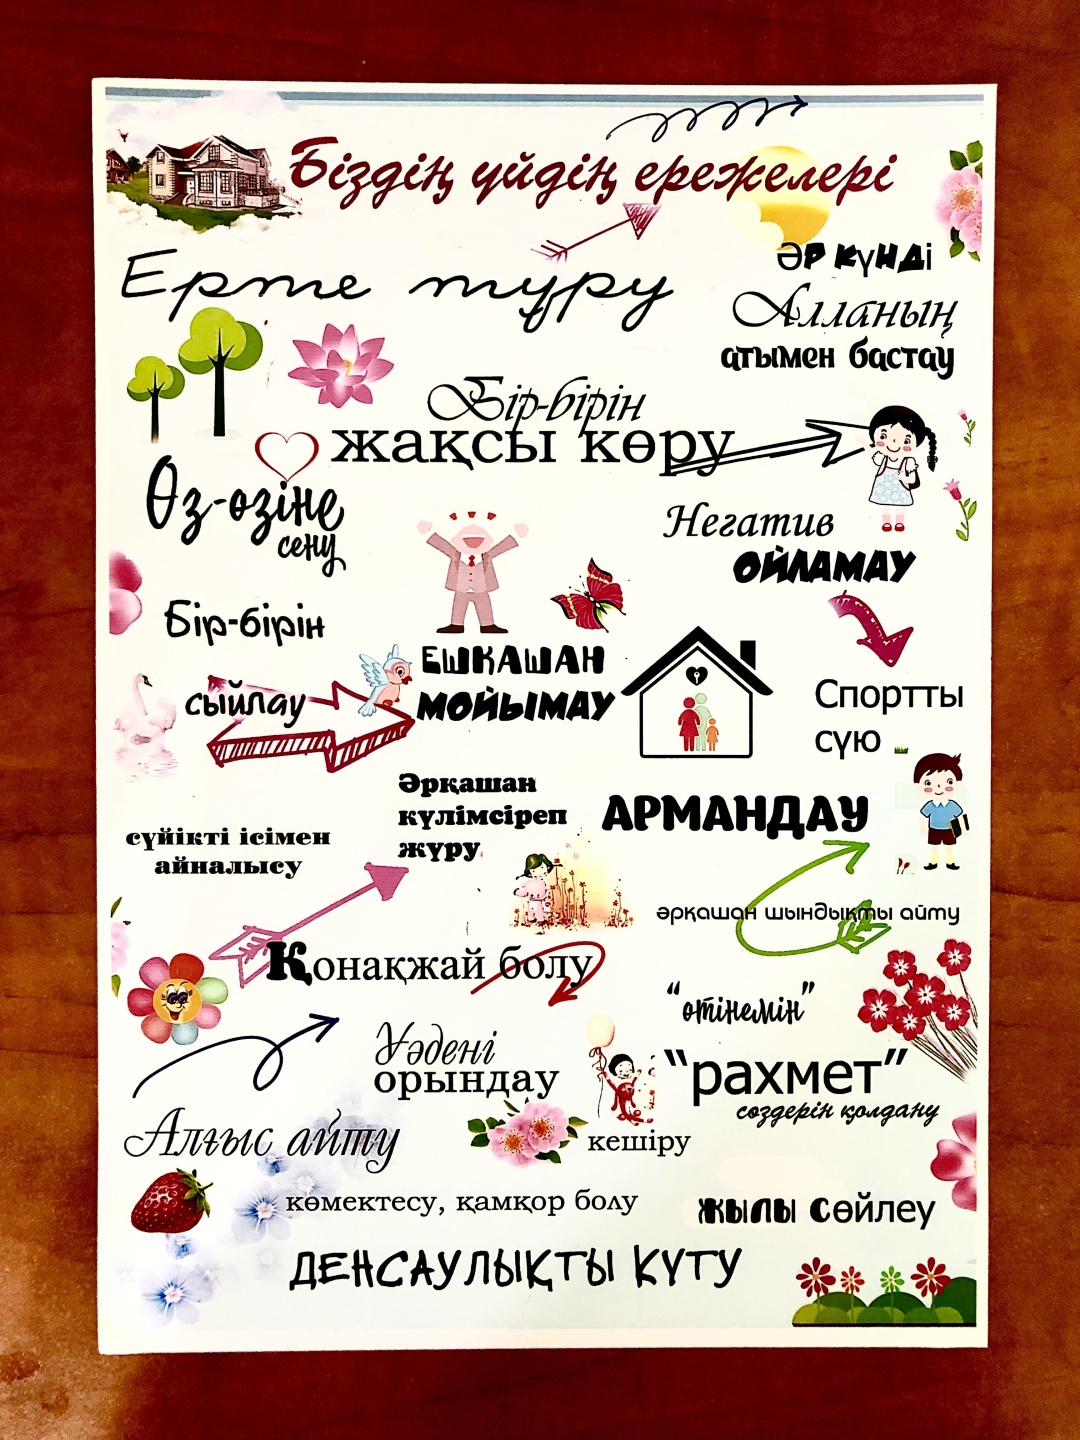 Біздің үйдің ережелері
Ерте тұру
Әр күнді
Алланың
атымен бастау
Бір-бірін
жақсы көру
Өз-өзіне
сену
Негатив
ОЙЛАМАУ
Бір-бірін
сыйлау
ЕШҚАШАН
МОЙЫМАУ
Спортты
сүю
Әрқашан
күлімсіреп
жүру
АРМАНДАУ
сүйікті ісімен
айналысу
әрқашан шындықты айту
Қонақжай болу
"өтінемін"
Уәдені
орындау
"рахмет"
сөздерін қолдану
Алғыс айту
кешіру
көмектесу, қамқор болу
жылы сөйлеу
ДЕНСАУЛЫҚТЫ КҮТУ